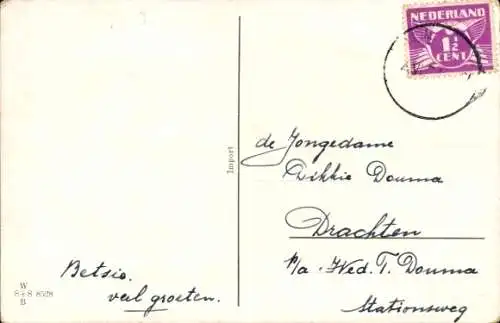 NEDERLAND
1½
CENT
Import
de Jongedame
Dikkie Douma
Drachten
p/a. Wed. T. Douma
Stationsweg
Betsie.
veel groeten.
W
S+S 8528
B